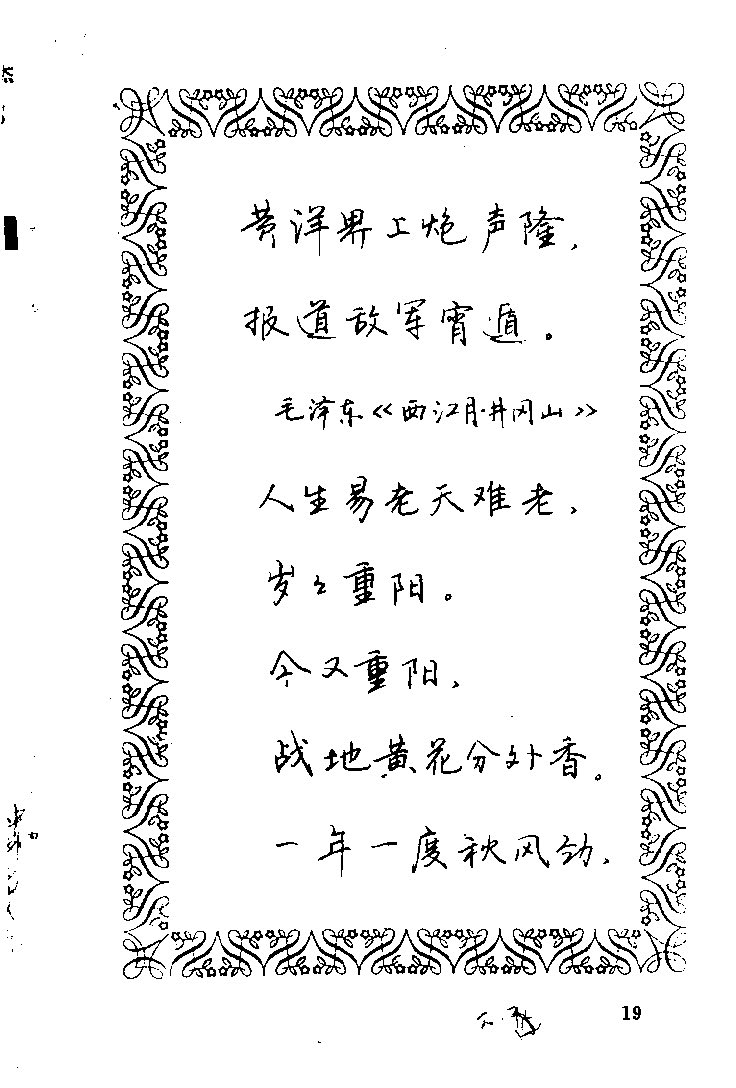 黄洋界上炮声隆，
报道敌军宵遁。
毛泽东《西江月·井冈山》
人生易老天难老、
岁々重阳。
今又重阳、
战地黄花分外香。
一年一度秋风劲、
19